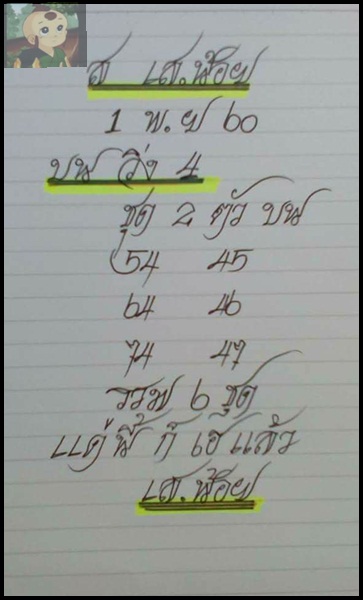 ส เส.ฟ้อย
1 พ.ย 60
บน วิ่ง 4
ชุด 2 ตัว บน
54 45
64 46
74 47
รวม 6 ชุด
แค่นี้ ก็ เฮ แล้ว
เส.ฟ้อย